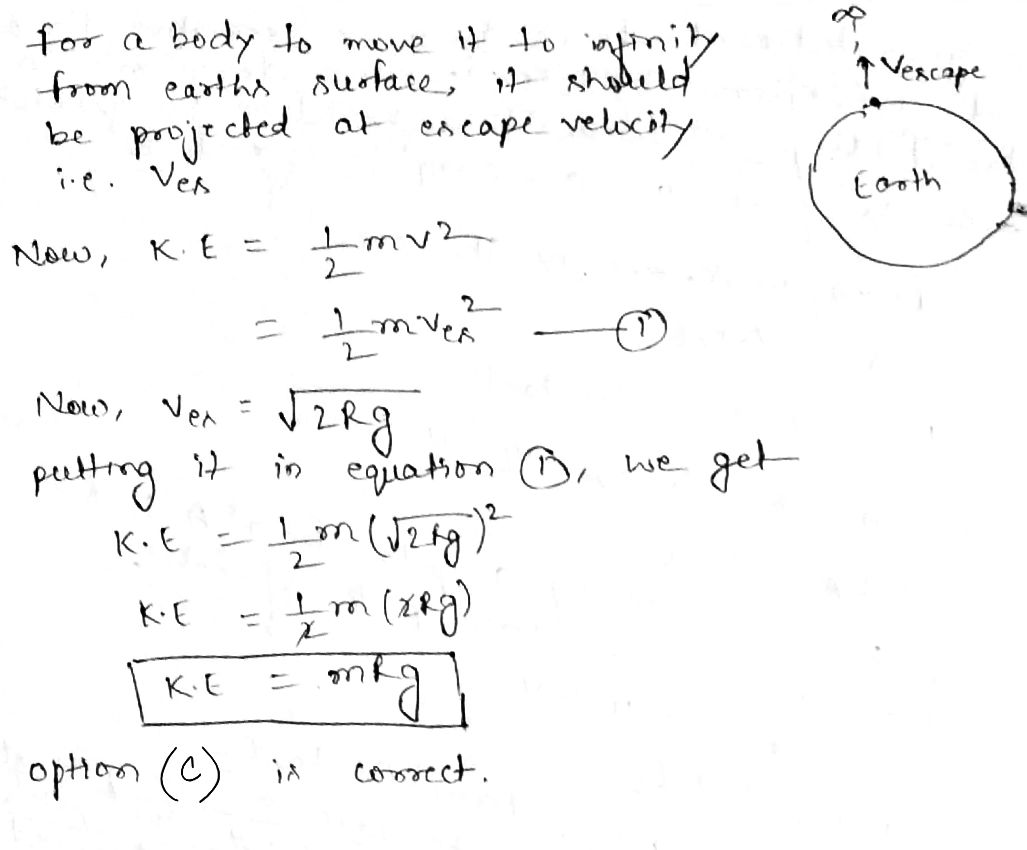 for a body to move it to infinity
from earths surface, it should
be projected at escape velocity
i.e. Ves
∞
Vescape
Earth
Now, K.E = 1/2 mv²
= 1/2 mves² — (1)
Now, Ves = √2Rg
putting it in equation (1), we get
K.E = 1/2 m(√2Rg)²
K.E = 1/2 m(2Rg)
K.E = mRg
option (C) is correct.